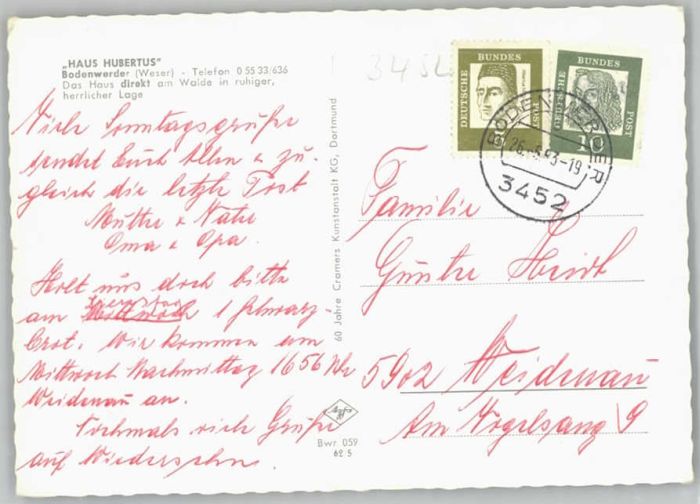 „HAUS HUBERTUS"
Bodenwerder (Weser) - Telefon 0 55 33/636
Das Haus direkt am Walde in ruhiger,
herrlicher Lage
Viele Sonntagsgrüße
sendet Euch Allen u zu-
gleich die letzte Post
Mutter u Vater
Oma u Opa.
Holt uns doch bitte
am 1 Schwarz-
Brot. Wir kommen am
Mittwoch Nachmittag 16 56 Uhr
Weidenau an.
Nochmals viele Grüße
auf Wiedersehn.
60 Jahre Cramers Kunstanstalt KG, Dortmund
Agfa
Bwr 059
62 5
3452
DEUTSCHE BUNDESPOST
DEUTSCHE BUNDESPOST
10
BODENWERDER
26.-6.63-19
3452
Familie
Günter
5902 Weidenau
Am Vogelsang 9